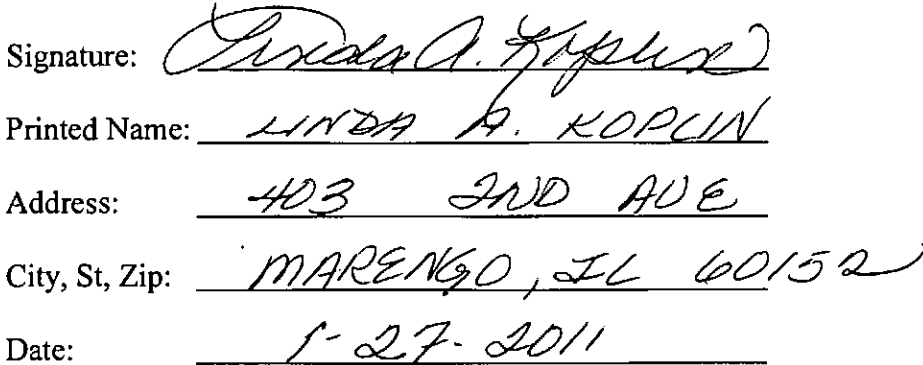 Signature: Linda A. Koplin
Printed Name: LINDA A. KOPLIN
Address: 403 2ND AVE
City, St, Zip: MARENGO, IL 60152
Date: 1-27-2011